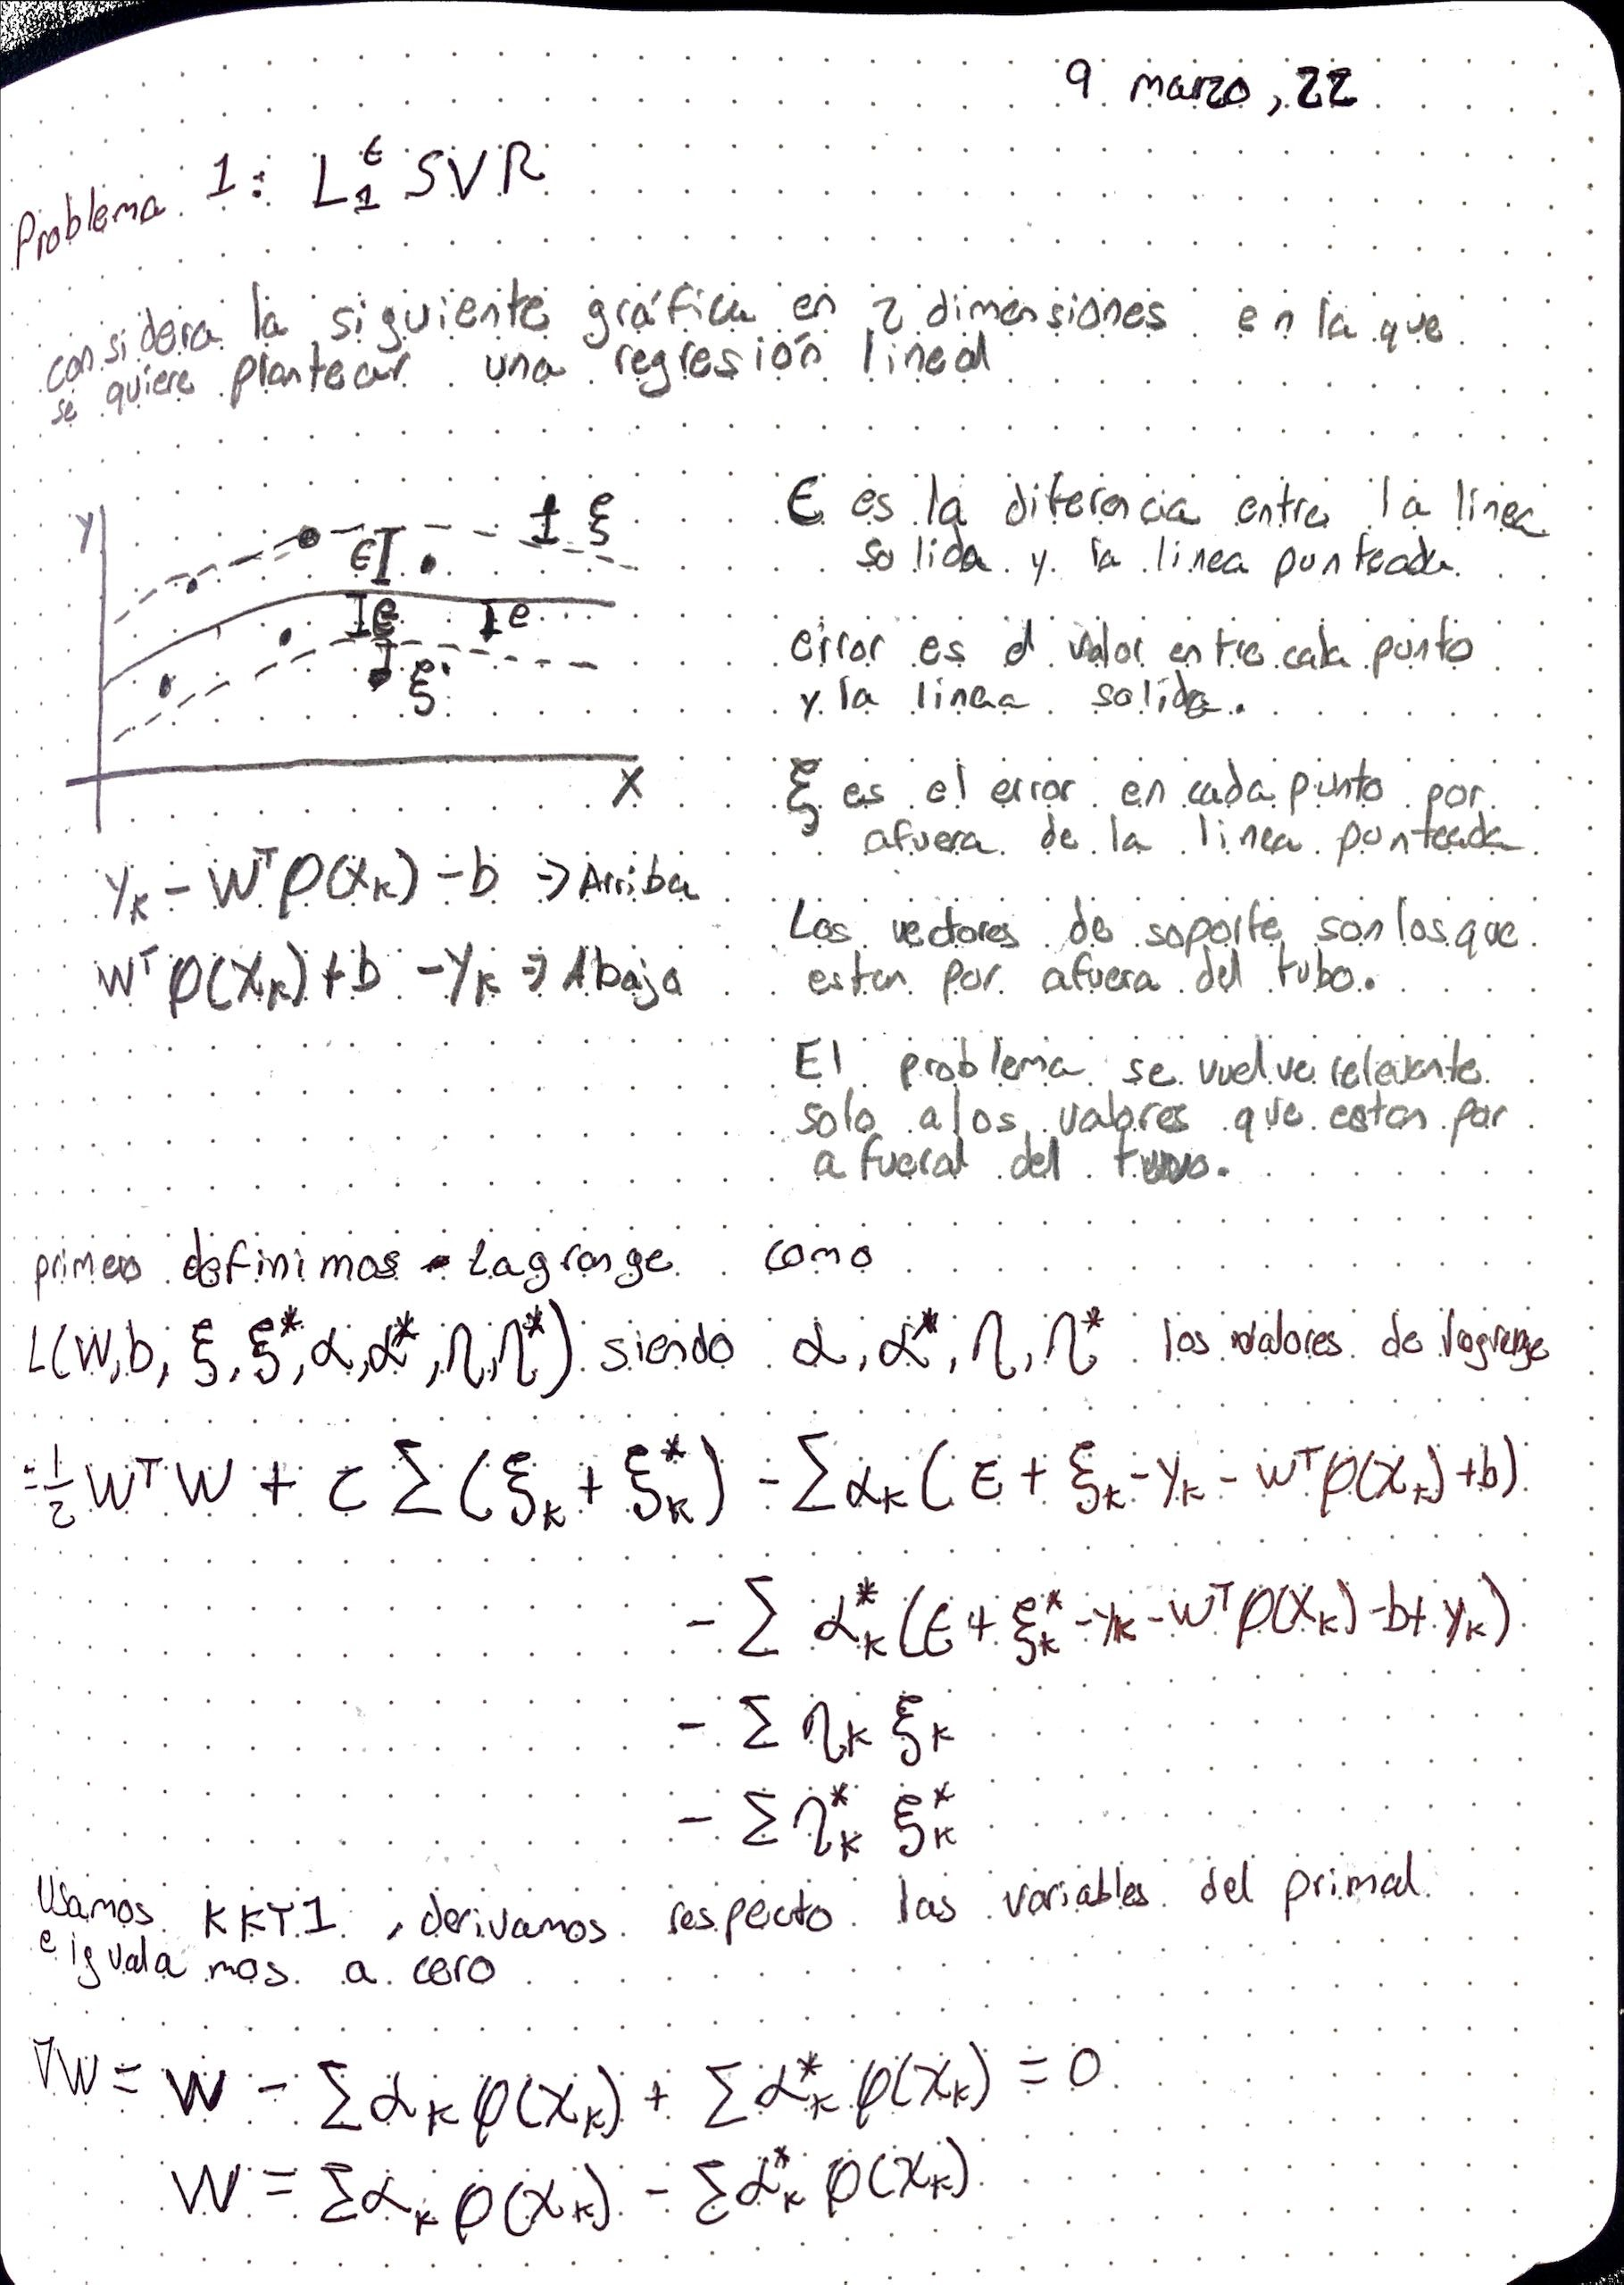 9 marzo, 22
Problema 1: L₁^ϵ SVR
considera la siguiente gráfica en 2 dimensiones en la que
se quiere plantear una regresión lineal
y
ξ
ϵ
e
e
ξ
x
ϵ es la diferencia entre la linea
solida y la linea punteada
error es el valor entre cada punto
y la linea solida.
ξ es el error en cada punto por
afuera de la linea punteada
Los vectores de soporte son los que
estan por afuera del tubo.
El problema se vuelve relevante
solo a los valores que estan por
afueral del
y_k - wᵀφ(x_k) - b → Arriba
wᵀφ(x_k) + b - y_k → Abajo
primero definimos Lagrange como
L(w, b, ξ, ξ*, α, α*, η, η*) siendo α, α*, η, η* los valores de lagrange
= ½ wᵀw + c Σ(ξ_k + ξ*_k) - Σα_k(ε + ξ_k - y_k - wᵀφ(x_k) + b)
- Σ α*_k(ϵ + ξ*_k - y_k - wᵀφ(x_k) - b + y_k)
- Σ η_k ξ_k
- Σ η*_k ξ*_k
Usamos KKT1, derivamos respecto las variables del primal
e igualamos a cero
∇w = w - Σα_k φ(x_k) + Σα*_k φ(x_k) = 0
w = Σα_k φ(x_k) - Σα*_k φ(x_k)